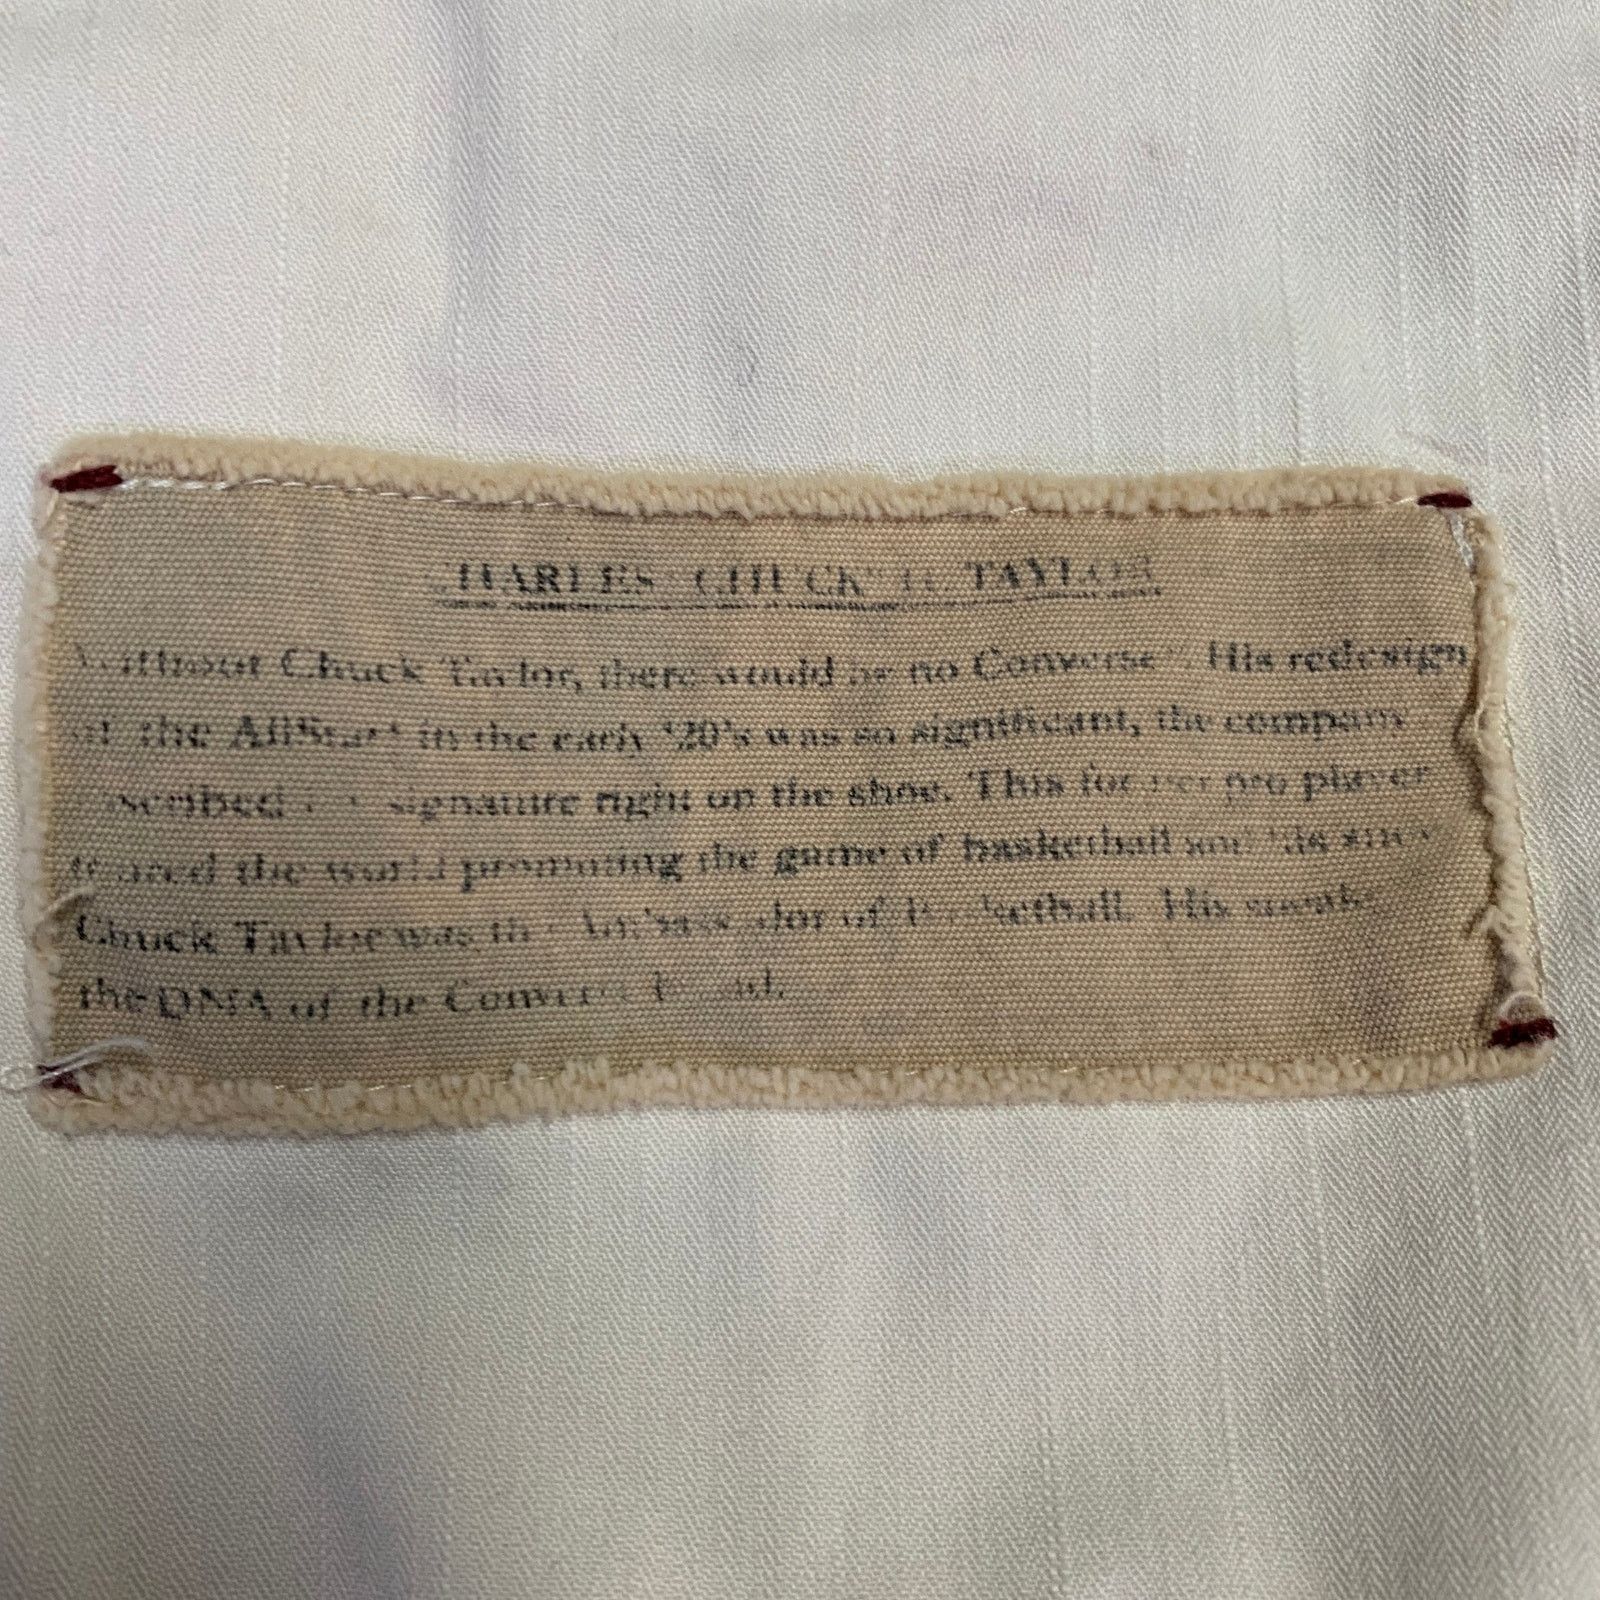 CHARLES "CHUCK" H. TAYLOR
Without Chuck Taylor, there would be no Converse". His redesign
of the AllStar" in the early '20's was so significant, the company
inscribed signature right on the shoe. This former pro player
toured the world promoting the game of basketball and his
Chuck Taylor was the Ambassador of Basketball. His
the DNA of the Converse brand.